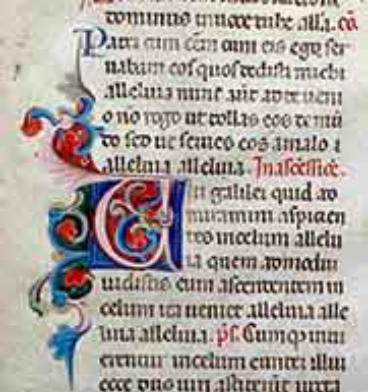 dominus in nocte nube alla. cō
Pater cum essem cum eis ego ser
uabam eos quos dedisti michi
alleluia nunc aut ad te ueni
o no rogo ut tollas eos de mū
do sed ut serues eos a malo a
alleluia alleluia. In ascēssiōe.
iri galilei quid ad
miramini aspicien
tes in celum allelu
ia quem admodū
uidistis eum ascendentem in
celum ita ueniet alleluia alle
luia alleluia. ps. Cumq; intu
erentur in celum euntē illū
ecce duo uiri astiterūt iuxta